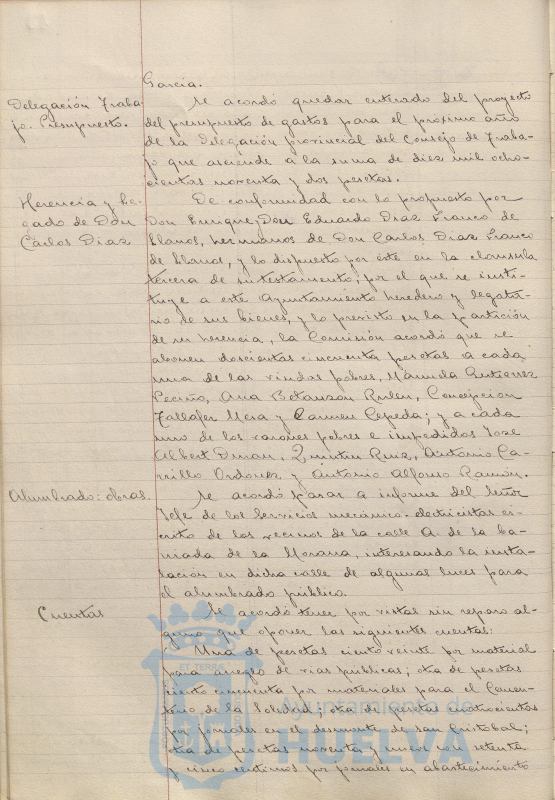 García.
Delegación Traba-
jo. Presupuesto.
Se acordó quedar enterado del proyecto
del presupuesto de gastos para el próximo año
de la Delegación provincial del Consejo de Traba-
jo que asciende a la suma de diez mil ocho-
cientas noventa y dos pesetas.
Herencia y le-
gado de Don
Carlos Díaz
De conformidad con lo propuesto por
Don Enrique, Don Eduardo Diaz Franco de
Llanos, hermanos de Don Carlos Diaz Franco
de Llanos, y lo dispuesto por éste en la clausula
tercera de su testamento, por el que se insti-
tuye a este Ayuntamiento heredero y legata-
rio de sus bienes, y lo previsto en la partición
de su herencia, la Comisión acordó que se
abonen doscientas cincuenta pesetas a cada
una de las viudas pobres, Manuela Gutierrez
Ana Betanzon Concepcion
Mesa y Carmen Cepeda; y a cada
uno de los varones pobres e impedidos José
Albert Quintin Ruiz, Antonio Ca-
rrillo Ordoñez y Antonio Alfonso Ramón.
Alumbrado: obras.
Se acordó pasar a informe del Señor
Jefe de los Servicios mecánico-electricistas es-
crito de los vecinos de la calle A. de la ba-
rriada de la Morana, interesando la insta-
lación en dicha calle de algunas luces para
el alumbrado público.
Cuentas
Se acordó tener por vistas sin reparo al-
guno que oponer las siguientes cuentas:
Una de pesetas ciento veinte por material
para arreglo de vias públicas; otra de pesetas
ciento cincuenta por materiales para el Cemen-
terio de la Soledad; otra de pesetas cuatrocientas
por jornales en el desmonte de San Cristobal;
otra de pesetas noventa y nueve con setenta
y cinco centimos por jornales en abastecimiento
ET TERRÆ
Ayuntamiento de
HUELVA